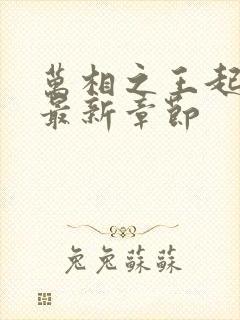 萬相之王起
最新章節
兔兔蘇蘇